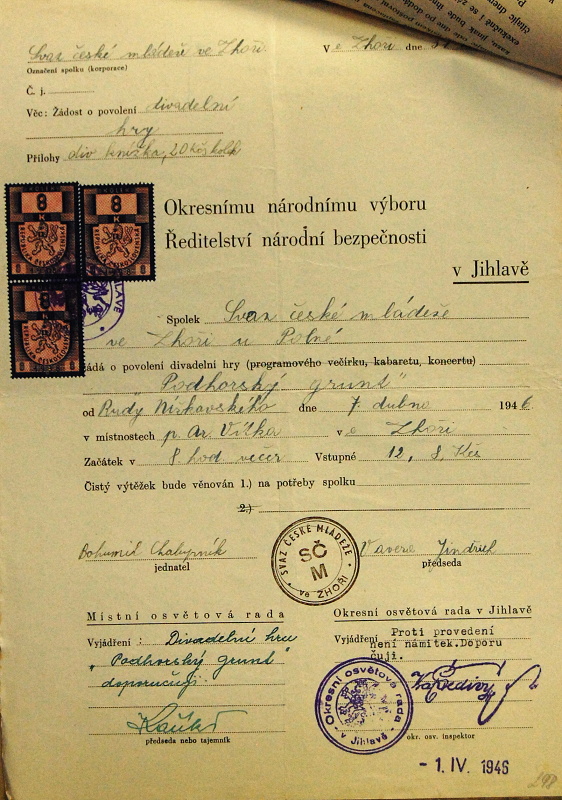 Svaz české mládeže ve Zhoři
Ve Zhoři dne
Označení spolku (korporace)
Č. j.
Věc: Žádost o povolení divadelní
hry
Přílohy div. knížka, 20 Kčs kolk
8
K
8
K
REPUBLIKA ČESKOSLOVENSKÁ
Okresnímu národnímu výboru
Ředitelství národní bezpečnosti
v Jihlavě
Spolek Svaz české mládeže
ve Zhoři u Polné
žádá o povolení divadelní hry (programového večírku, kabaretu, koncertu)
"Podhorský grunt"
od Rudy dne 7. dubna 1946
v místnostech p. Ar. Vítka ve Zhoři
Začátek v 8 hod večer Vstupné 12, 8, Kčs
Čistý výtěžek bude věnován 1.) na potřeby spolku
2.)
Bohumil Chalupník
jednatel
SVAZ ČESKÉ MLÁDEŽE
SČM
VE ZHOŘI
Vavera Jindřich
předseda
Místní osvětová rada
Vyjádření: Divadelní hru
"Podhorský grunt"
doporučuji
předseda nebo tajemník
Okresní osvětová rada v Jihlavě
Vyjádření Proti provedení
není námitek.Doporu
čuji.
Okresní osvětová rada
v Jihlavě
okr. osv. inspektor
- 1. IV. 1946
298